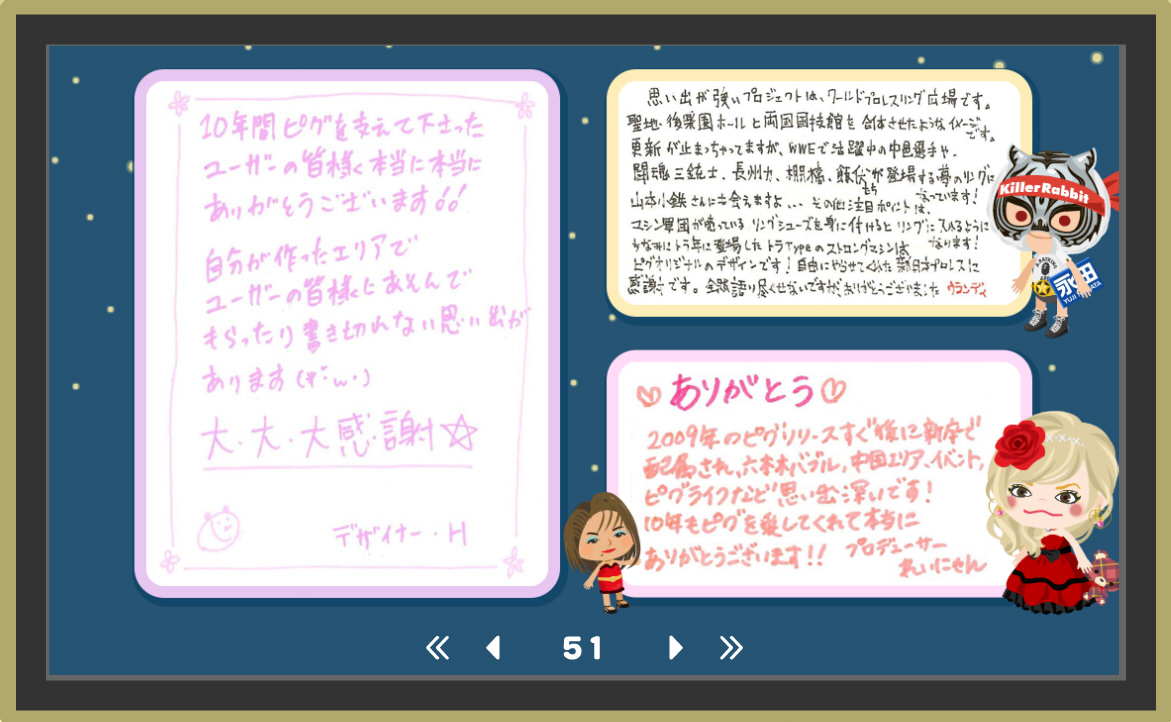 10年間ピグを支えて下さった
ユーザーの皆様、本当に本当に
ありがとうございます!!
自分が作ったエリアで
ユーザーの皆様にあそんで
もらったり書き切れない思い出が
あります(*・ω・)
大・大・大感謝☆
デザイナー・H
思い出が強いプロジェクトは、ワールドプロレスリング広場です。
聖地・後楽園ホールと両国国技館を合体させたようなイメージです。
更新が止まっちゃってますが、WWEで活躍中の中邑選手や、
闘魂三銃士、長州力、棚橋、飯伏たちが登場する夢のリングになっています!
山本小鉄さんにも会えますよ... その他注目ポイントは、
マシン軍団が売っているリングシューズを身に付けるとリングに入れるようになります!
ちなみにトラ年に登場したトラTypeのストロングマシンは
ピグオリジナルのデザインです!自由にやらせてくれた新日本プロレスに
感謝です。全部語り尽くせないですが、ありがとうございました ウランディ
KillerRabbit
永田
YUJI NAGATA
ありがとう
2009年のピグリリースすぐ後に新卒で
配属され、六本木バブル、中国エリア、イベント、
ピグライフなど思い出深いです!
10年もピグを愛してくれて本当に
ありがとうございます!! プロデューサー
れいにゃん
51